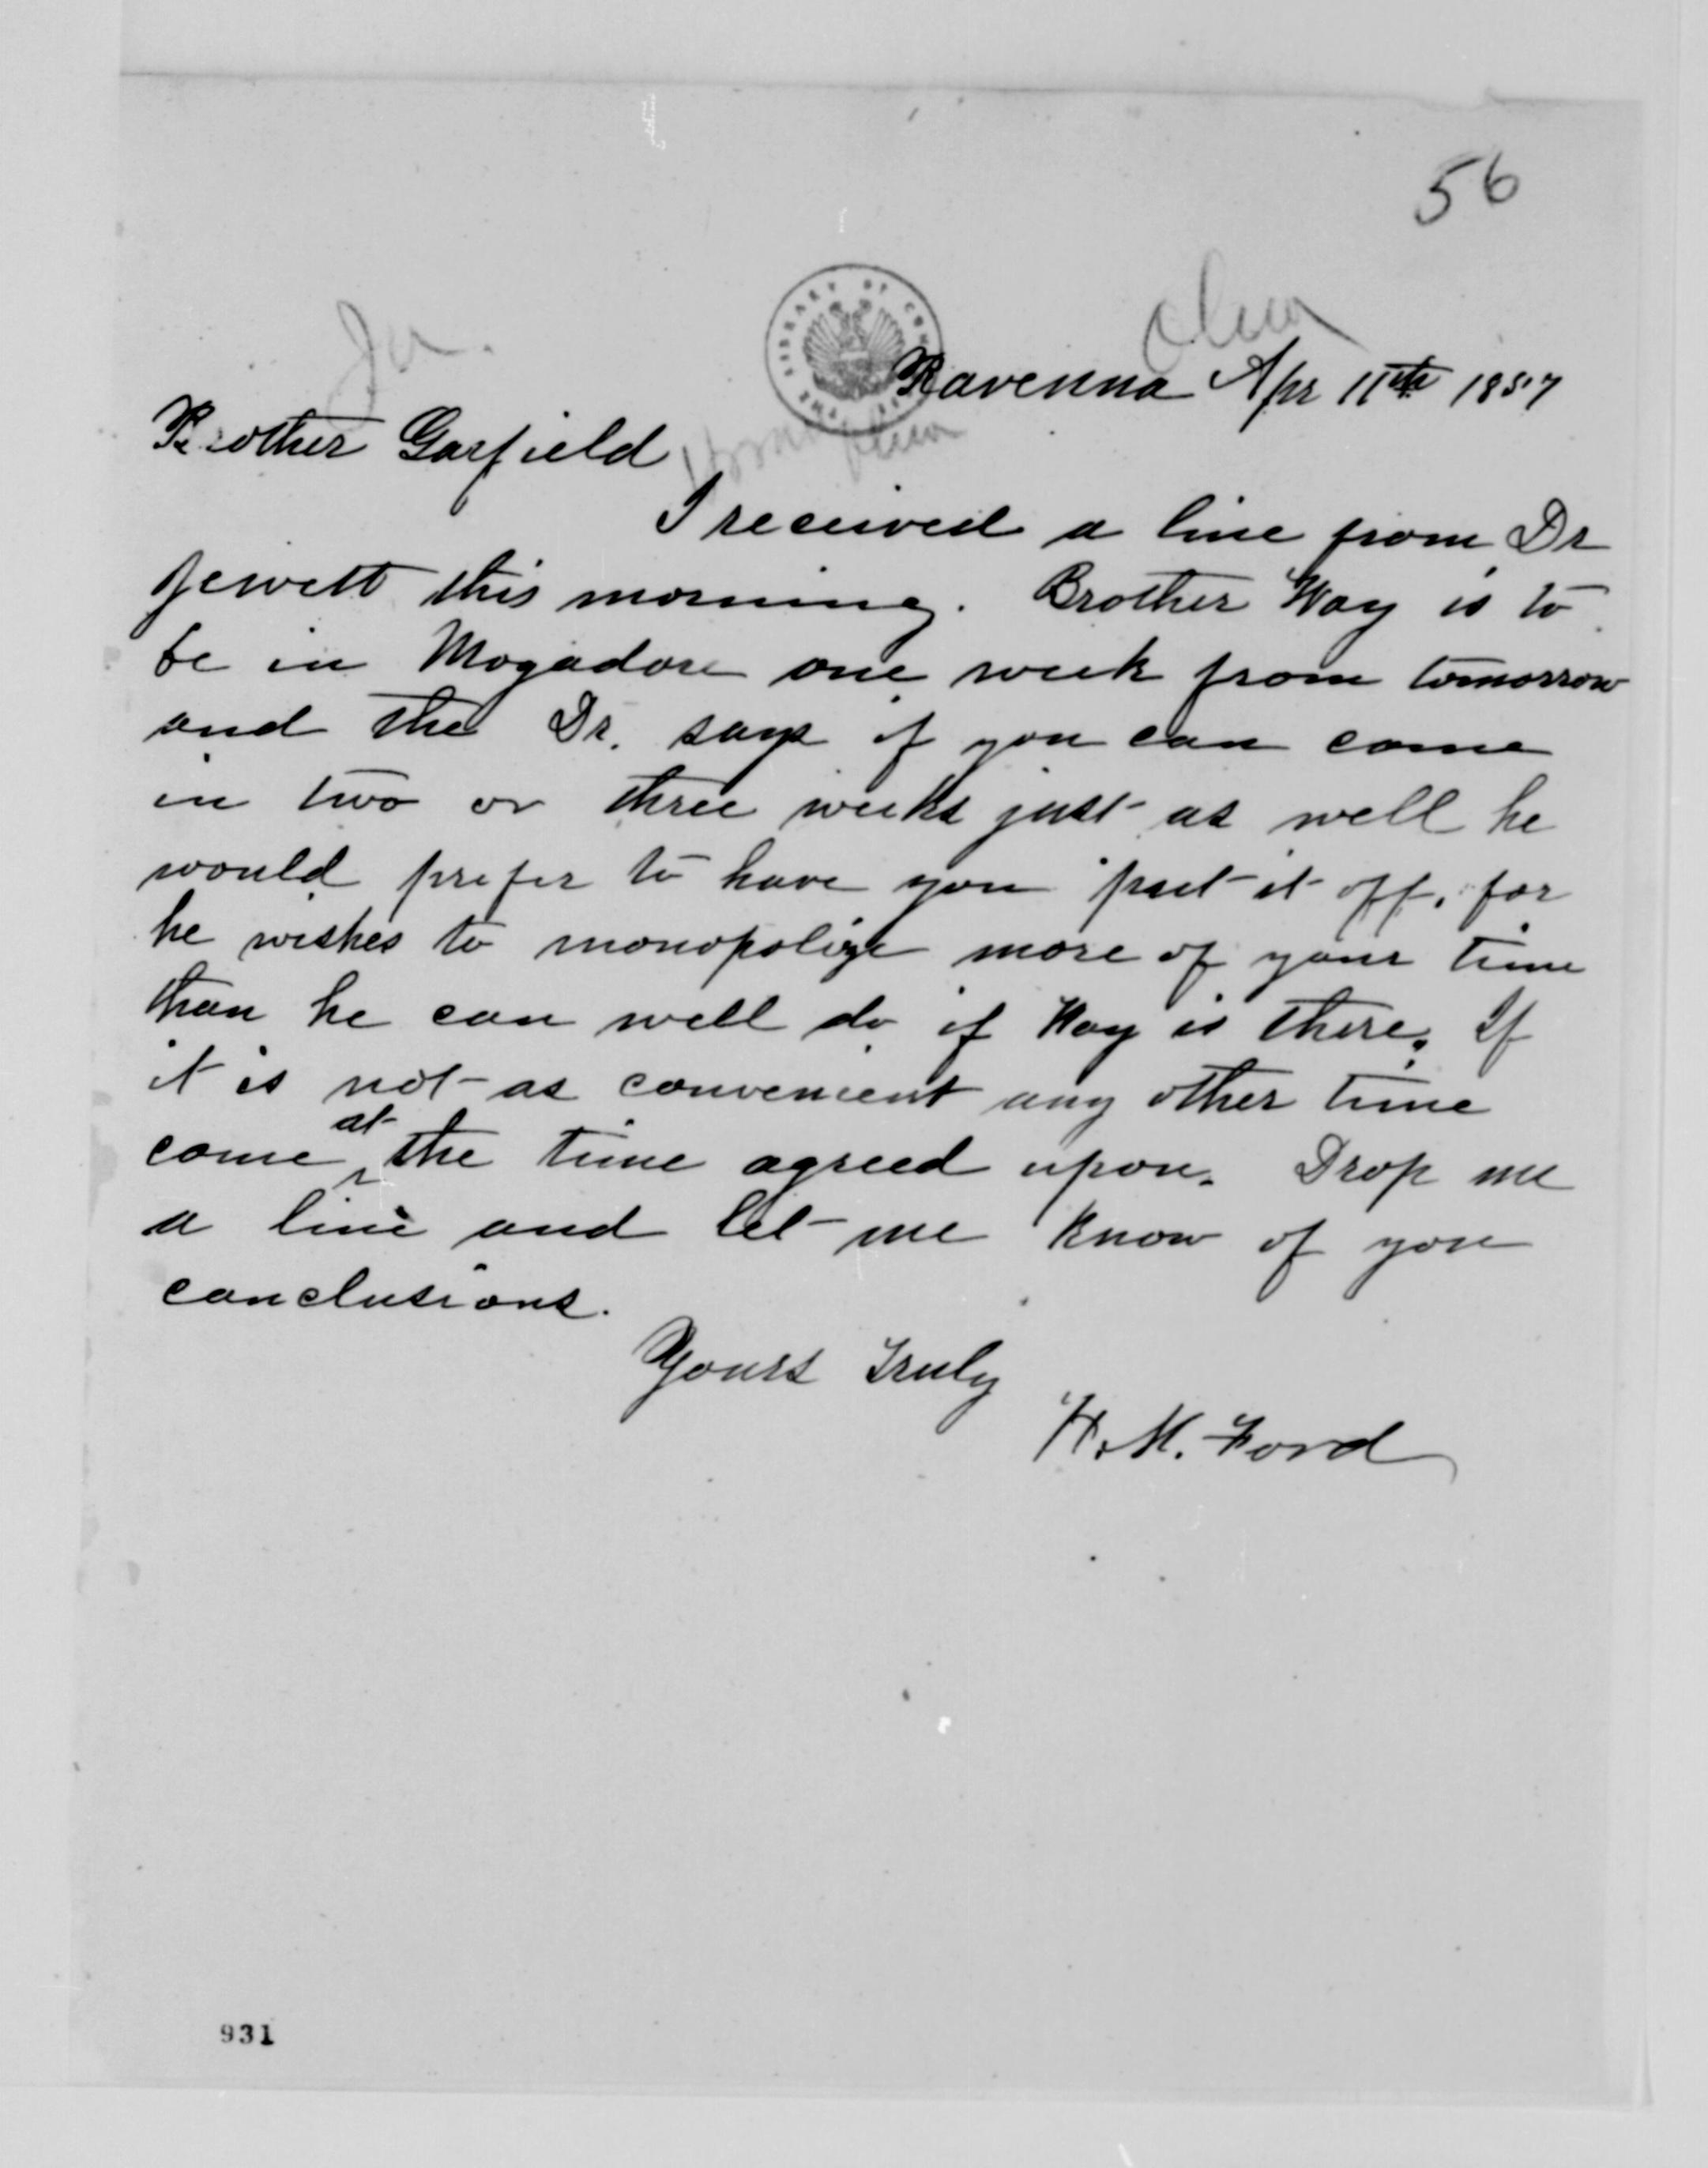 56
Ravenna Apr 11th 1857
Brother Garfield
I received a line from Dr
Jewett this morning. Brother Way is to
be in Mogadore one week from tomorrow
and the Dr. says if you can come
in two or three weeks just as well he
would prefer to have you put it off, for
he wishes to monopolize more of your time
than he can well do if Way is there. If
it is not as convenient any other time
come at the time agreed upon. Drop me
a line and let me know of you
conclusions.
Yours Truly
H. M. Ford
931